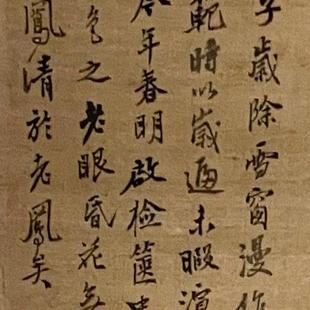 子歲除雪窗漫作
範時以歲逼未暇渲
年春明啟檢篋中
色之老眼昏花無
鳳清於老鳳矣